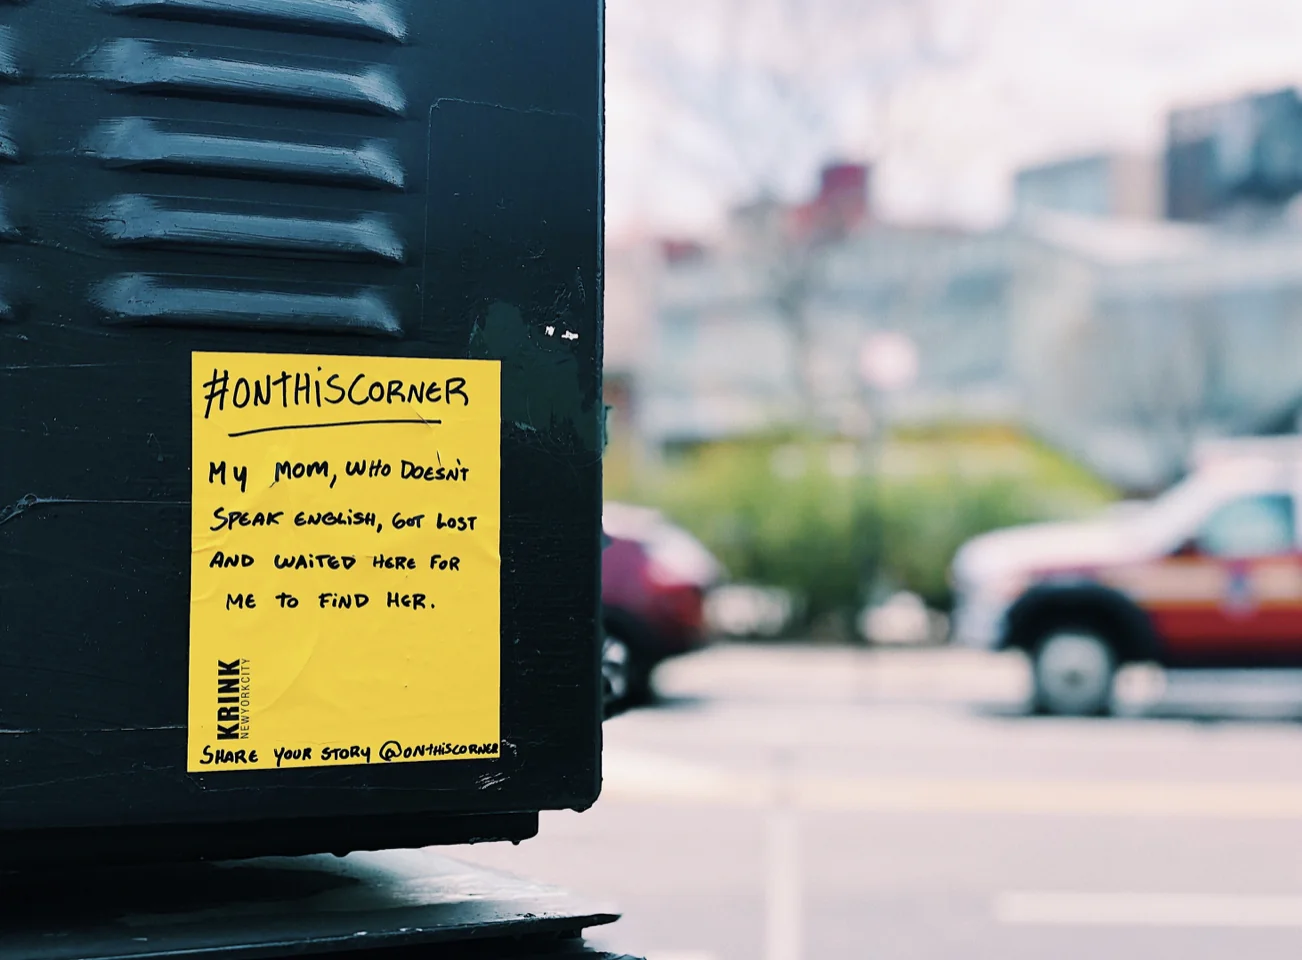 #ONTHiSCORNER
MY MOM, WHO DOESN'T
SPEAK ENGLiSH, GOT LOST
AND WAiTED HERE FOR
ME TO FiND HER.
KRINK
NEWYORKCITY
SHARE YOUR STORY @ONTHiSCORNER